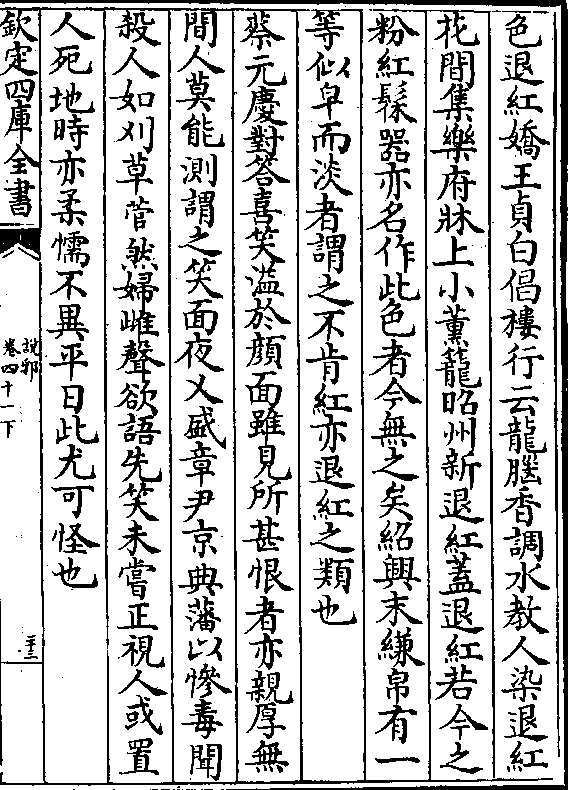 色退紅嬌王貞白倡樓行云龍腦香調水教人染退紅
花間集樂府牀上小薰籠昭州新退紅葢退紅若今之
粉紅髹器亦名作此色者今無之矣紹興末縑帛有一
等似皁而淡者謂之不肯紅亦退紅之類也
蔡元慶對答喜笑溢於顔面雖見所甚恨者亦親厚無
間人莫能測謂之笑面夜乂盛章尹京典藩以慘毒聞
殺人如刈草菅然婦雌聲欲語先笑未嘗正視人或置
人死地時亦柔懦不異平日此尤可怪也
欽定四庫全書
說郛
卷四十一下
三十三